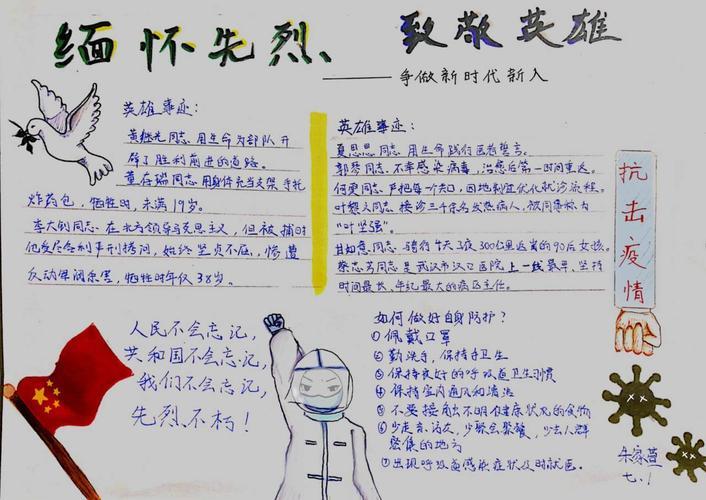 缅怀先烈、
致敬英雄
——争做新时代新人
英雄事迹：
黄继光同志 用生命为部队开
辟了胜利前进的道路。
董存瑞同志 用身体充当支架 手托
炸药包，牺牲时，未满19岁。
李大钊同志 在北方领导马克思主义，但被捕时
他受尽各种严刑拷问，始终坚贞不屈，惨遭
反动军阀杀害，牺牲时年仅38岁。
英雄事迹：
夏思思同志 用生命践行医者誓言。
郭琴同志 不幸感染病毒，治愈后第一时间重返。
叶黎义同志 接诊三千余名发热病人，被同事称为
“叶坚强”。
甘如意同志 骑行4天3夜300公里返岗的90后女孩。
同志是武汉市汉口医院上一线最早、坚持
时间最长、年纪最大的病区主任。
抗击疫情
人民不会忘记，
共和国不会忘记，
我们不会忘记，
先烈不朽！
如何做好自身防护？
①佩戴口罩
②勤洗手，保持手卫生
③保持良好的呼吸道卫生习惯
④保持室内通风和清洁
⑤不要接触不明健康状况的食物
⑥少走亲访友，少聚会聚餐，少去人群
密集的地方
⑦出现呼吸道感染症状及时就医。
朱家萱
七.1